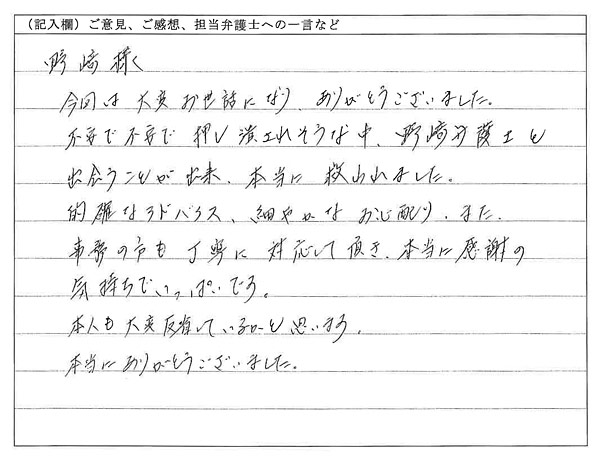 （記入欄）ご意見、ご感想、担当弁護士への一言など
野﨑様
今回は大変お世話になり、ありがとうございました。
不安で不安で押し潰されそうな中、野﨑弁護士と
出会うことが出来、本当に救われました。
的確なアドバイス、細やかなお心配り、また、
事務の方も丁寧に対応して頂き、本当に感謝の
気持ちでいっぱいです。
本人も大変反省しているかと思います。
本当にありがとうございました。